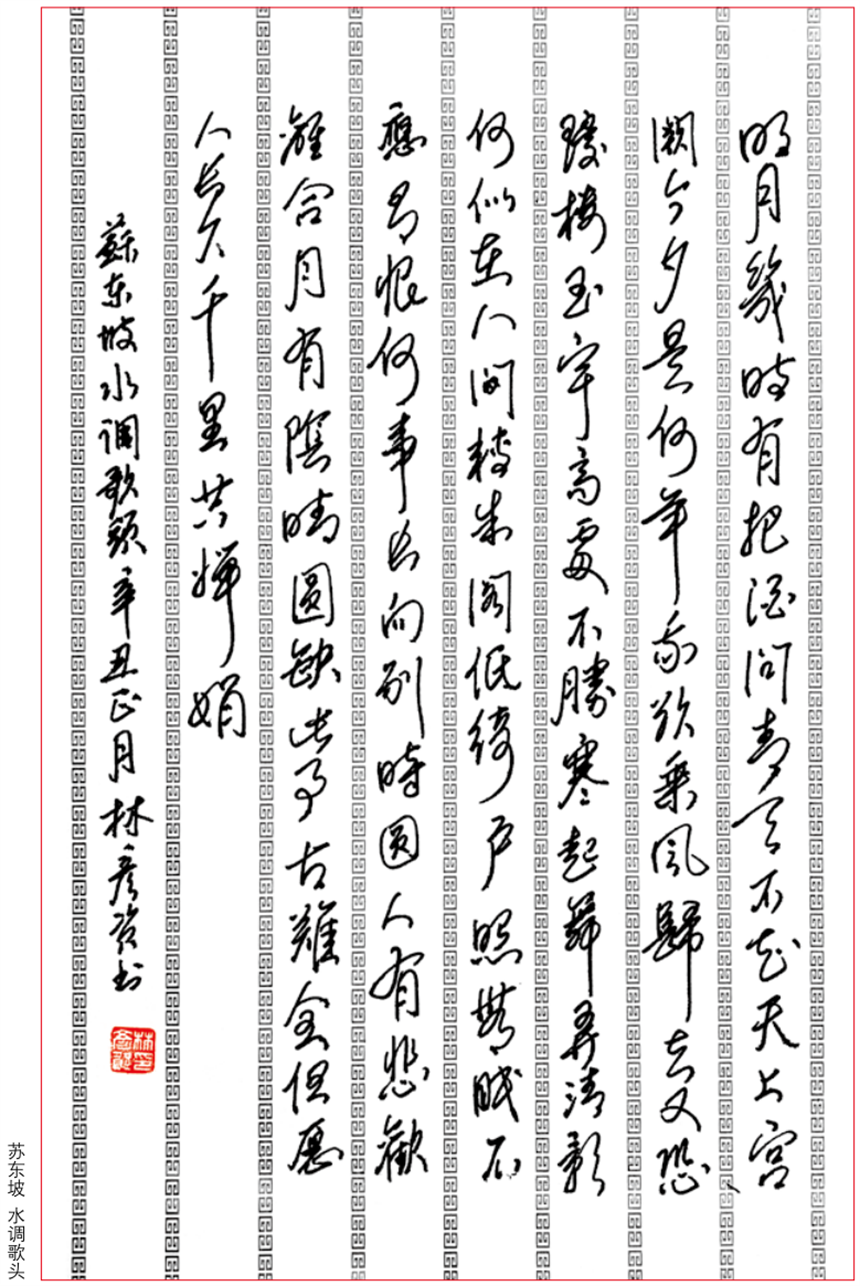 明月幾時有把酒问青天不知天上宫
阙今夕是何年我欲乘风歸去又恐
瓊楼玉宇高處不勝寒起舞弄清影
何似在人间轉朱阁低绮户照無眠不
應有恨何事长向别時圆人有悲歡
離合月有陰晴圓缺此事古難全但愿
人长久千里共婵娟
蘇东坡水调歌頭辛丑正月林彦书
苏东坡 水调歌头